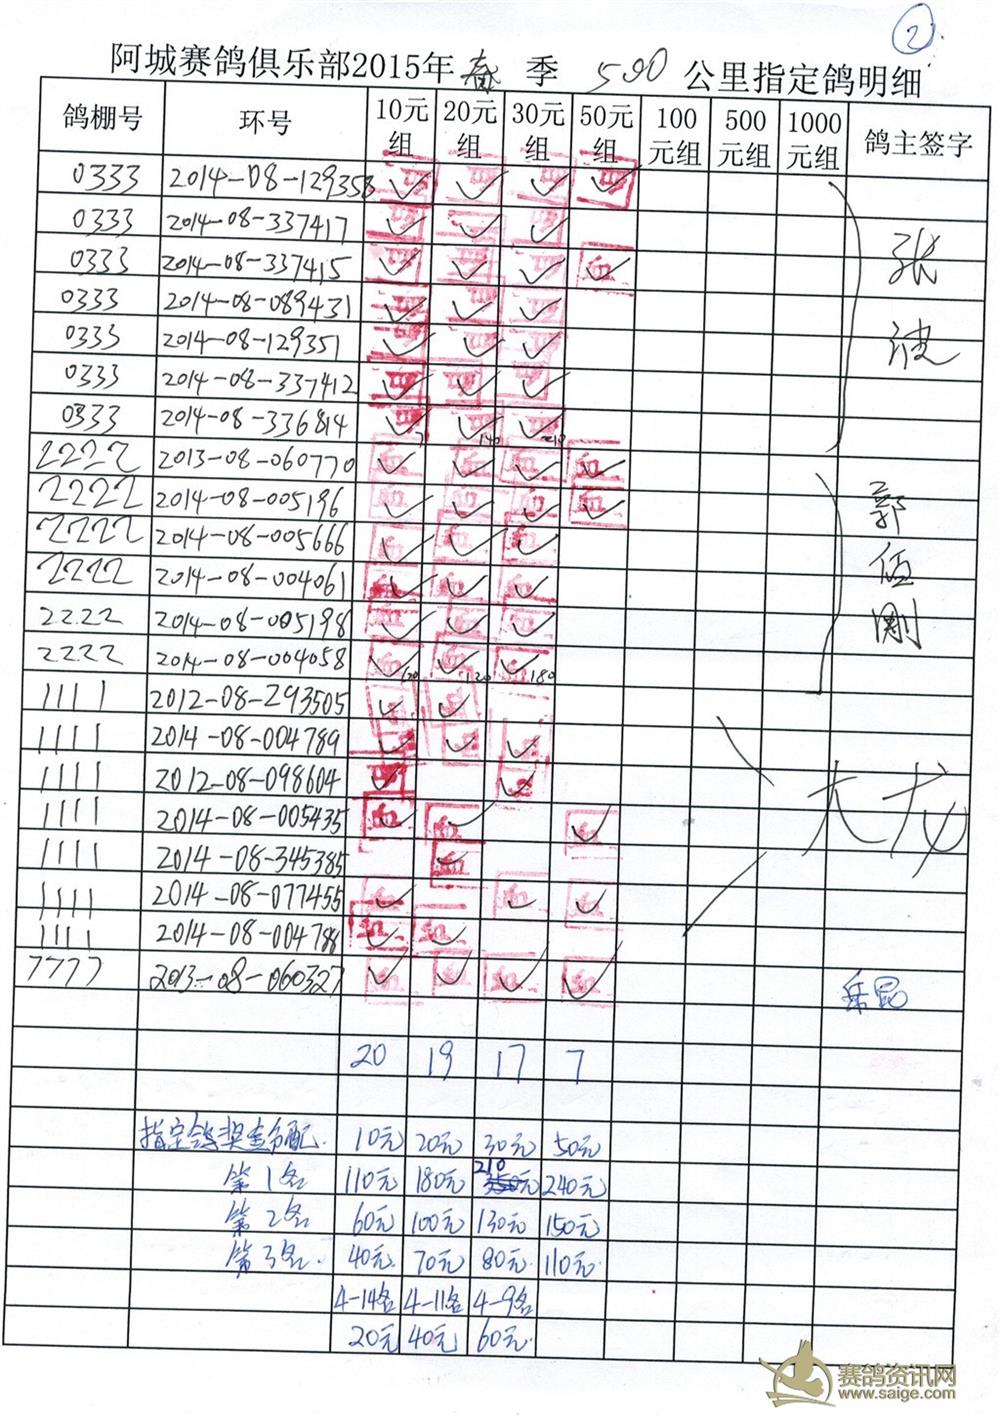 2
阿城赛鸽俱乐部2015年春季 500 公里指定鸽明细
鸽棚号 环号 10元组 20元组 30元组 50元组 100元组 500元组 1000元组 鸽主签字
0333 2014-08-129353 ✓ ✓ ✓ ✓
0333 2014-08-337417 ✓ ✓ ✓
0333 2014-08-337415 ✓ ✓ ✓ ✓
0333 2014-08-089431 ✓ ✓ ✓
0333 2014-08-129351 ✓ ✓ ✓
0333 2014-08-337412 ✓ ✓ ✓
0333 2014-08-336814 ✓ ✓ 140 ✓ 210
张波
2222 2013-08-060770 ✓ ✓ ✓ ✓
2222 2014-08-005196 ✓ ✓ ✓ ✓
2222 2014-08-005666 ✓ ✓ ✓
2222 2014-08-004061 ✓ ✓ ✓
2222 2014-08-005198 ✓ ✓ ✓
2222 2014-08-004058 ✓ ✓ 120 ✓ 180
郭伍刚
1111 2012-08-293505 ✓ ✓
1111 2014-08-004789 ✓ ✓ ✓
1111 2012-08-098604 ✓ ✓
1111 2014-08-005435 ✓ ✓ ✓
1111 2014-08-345385 ✓
1111 2014-08-077455 ✓ ✓ ✓
1111 2014-08-004788 ✓ ✓
大龙
7777 2013-08-060327 ✓ ✓ ✓ ✓
20 19 17 7
指定鸽奖金分配. 10元 20元 30元 50元
第1名 110元 180元 210元 240元
第2名 60元 100元 130元 150元
第3名. 40元 70元 80元 110元
4-14名 4-11名 4-9名
20元 40元 60元
赛鸽资讯网
www.saige.com